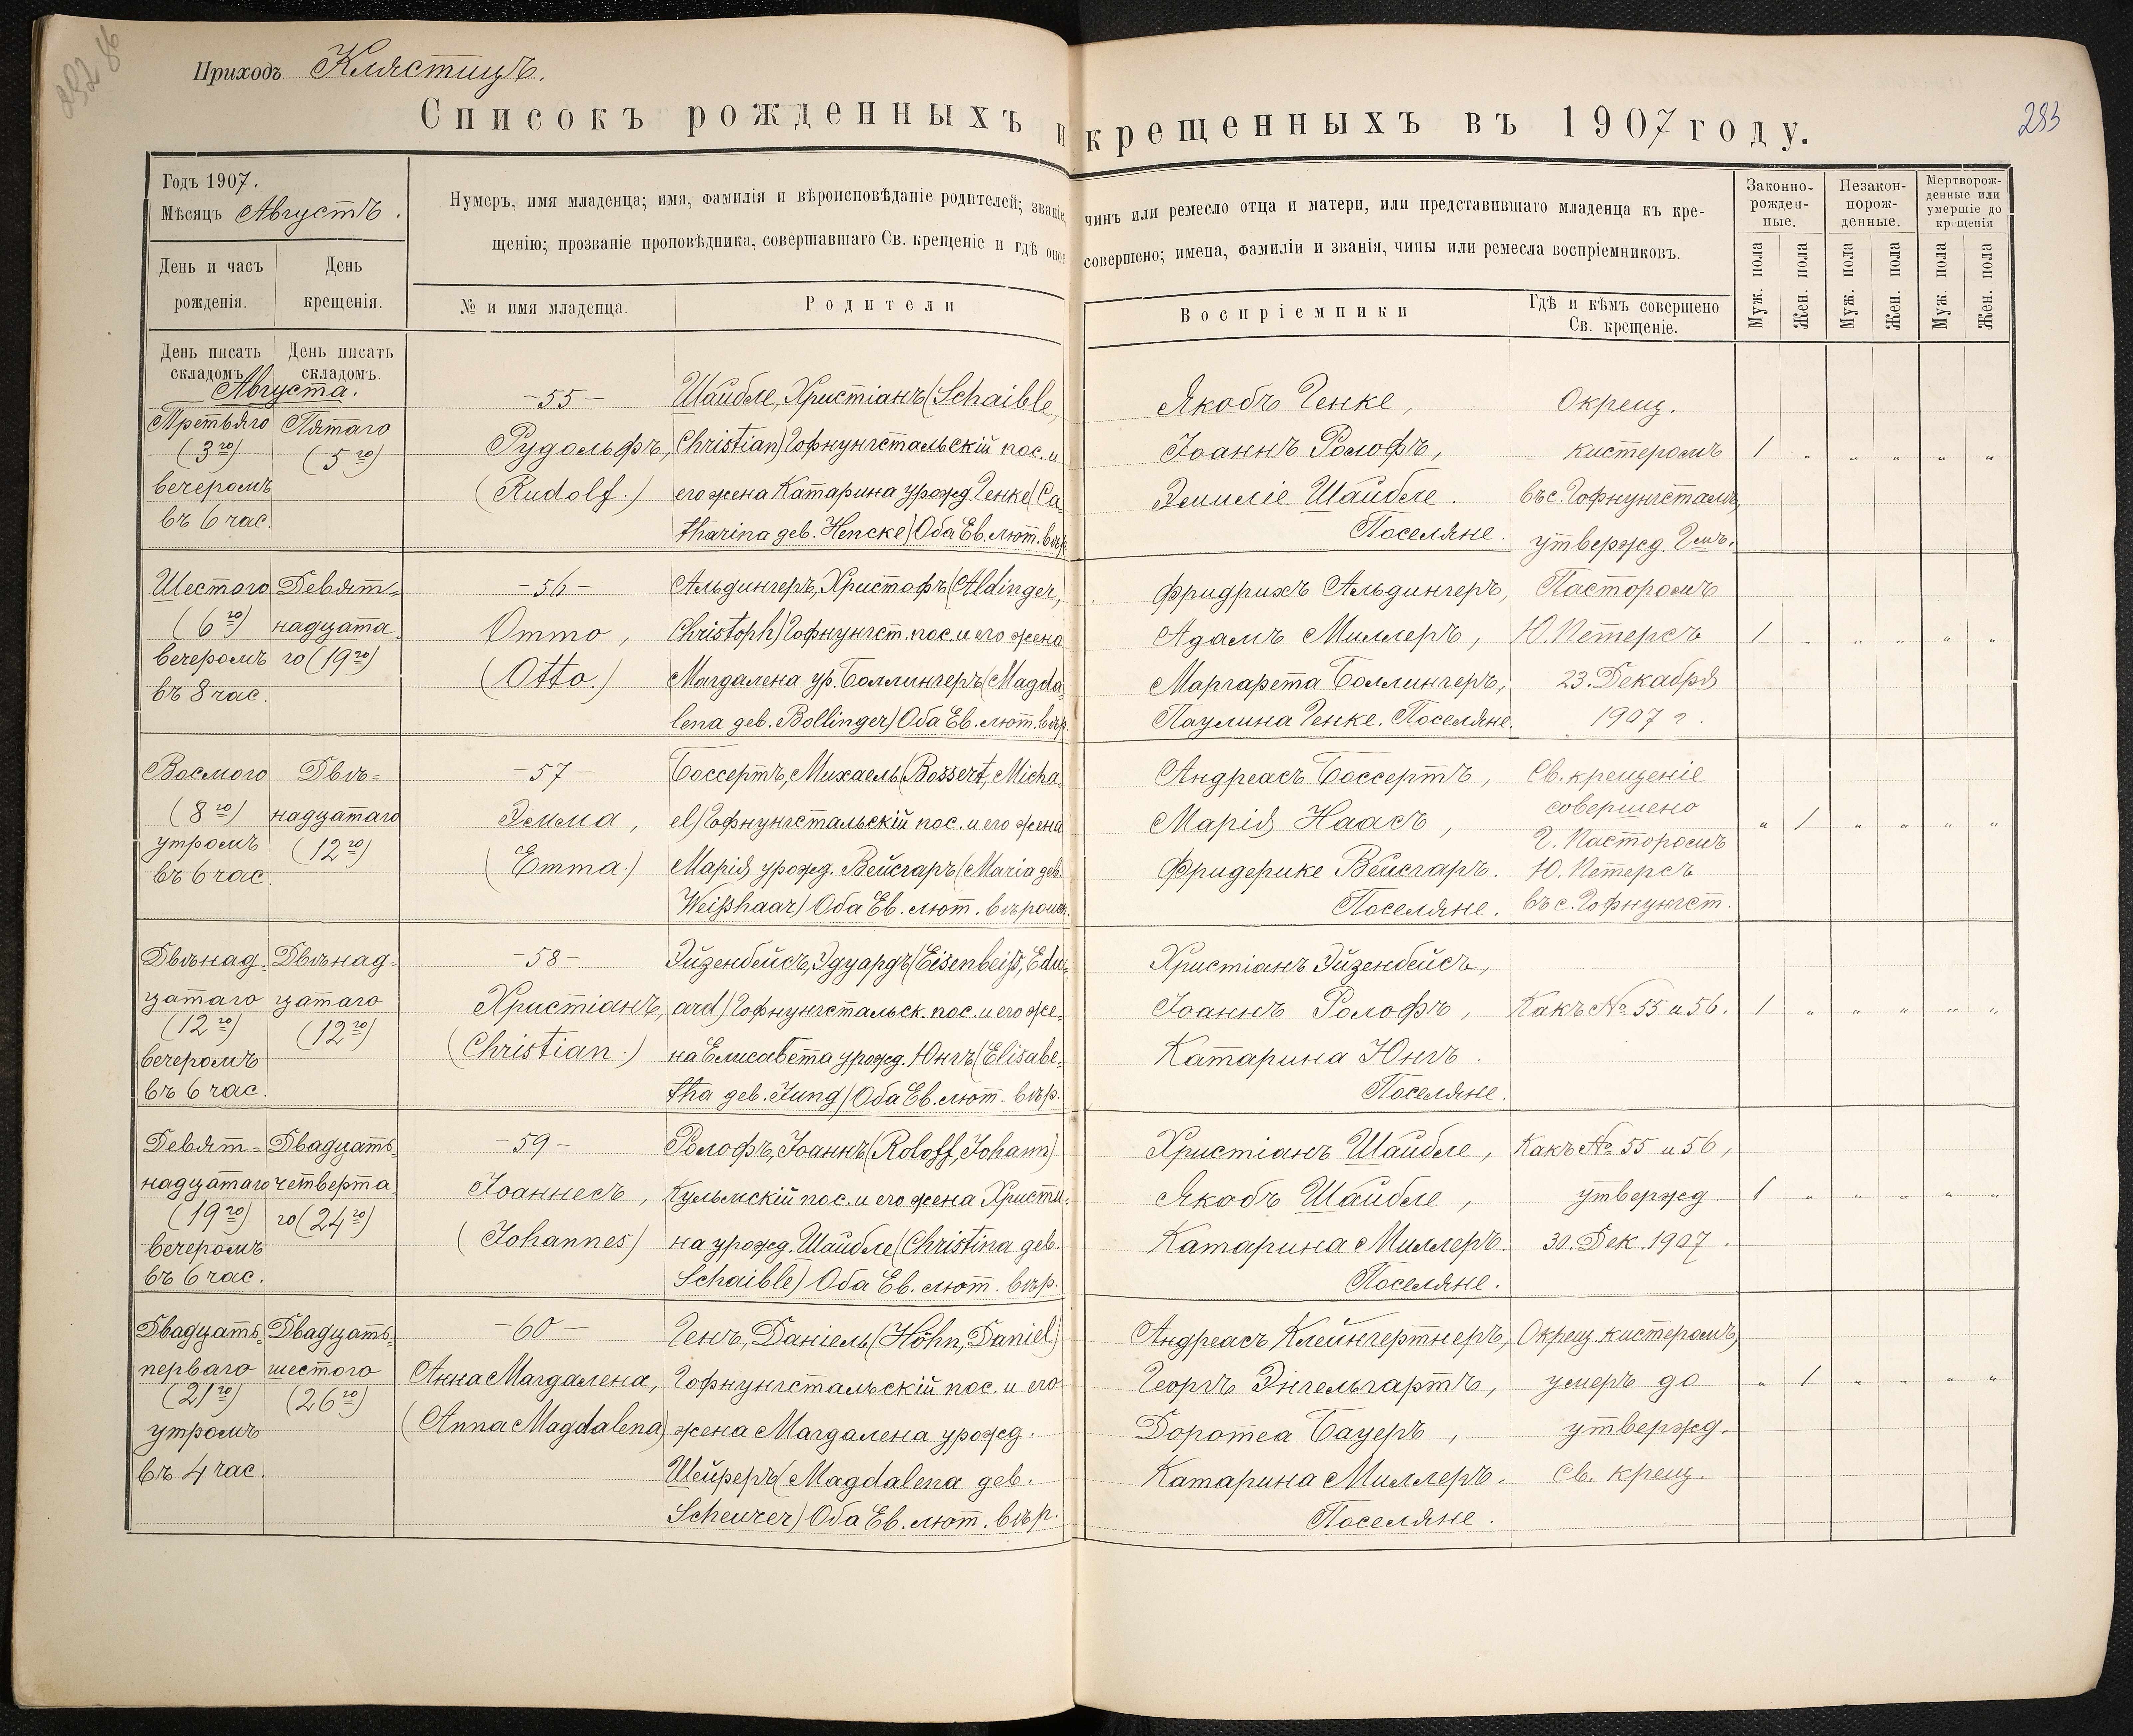 Приходъ Клястицъ.
283
Списокъ рожденныхъ и крещенныхъ въ 1907 году.
Годъ 1907.
Мѣсяцъ Августъ.
День и часъ рожденія.
День крещенія.
Нумеръ, имя младенца; имя, фамилія и вѣроисповѣданіе родителей; званіе, чинъ или ремесло отца и матери, или представившаго младенца къ кре-
щенію; прозваніе проповѣдника, совершавшаго Св. крещеніе и гдѣ оное совершено; имена, фамиліи и званія, чины или ремесла воспріемниковъ.
№ и имя младенца.
Родители
Воспріемники
Гдѣ и кѣмъ совершено
Св. крещеніе.
Законно-
рожден-
ные.
Незакон-
норож-
денные.
Мертворож-
денные или
умершіе до
крещенія
Муж. пола
Жен. пола
Муж. пола
Жен. пола
Муж. пола
Жен. пола
День писать
складомъ.
День писать
складомъ.
Августа.
Третьяго
(3го)
вечеромъ
въ 6 час.
Пятаго
(5го)
-55-
Рудольфъ,
(Rudolf.)
Шайбле, Христіанъ (Schaible,
Christian) Гофнунгстальскій пос. и
его жена Катарина урожд Генке (Ca-
tharina geb. Hencke) Оба Ев. лют. вѣр.
Якобъ Генке,
Іоаннъ Ролофъ,
Эмиліе Шайбле.
Поселяне.
Окрещ.
кистеромъ
въ с. Гофнунгсталь,
утвержд. Гмъ.
1 " " " " "
Шестого
(6го)
вечеромъ
въ 8 час.
Девят-
надцата
го (19го)
-56-
Отто,
(Otto.)
Альдингеръ, Христофъ (Aldinger,
Christoph) Гофнунгст. пос. и его жена
Магдалена ур. Боллингеръ (Magda-
lena geb. Bollinger) Оба Ев. лют. вѣр.
Фридрихъ Альдингеръ,
Адамъ Миллеръ,
Маргарета Боллингеръ,
Паулина Генке. Поселяне.
Пасторомъ
Ю. Петерсъ
23. Декабря
1907 г.
1 " " " " "
Восмого
(8го)
утромъ
въ 6 час.
Двѣ-
надцатаго
(12го)
-57-
Эмма,
(Emma.)
Боссертъ, Михаель (Bossert, Micha-
el) Гофнунгстальскій пос. и его жена
Марія урожд. Вейсгаръ (Maria geb.
Weißhaar) Оба Ев. лют. вѣроисп.
Андреасъ Боссертъ,
Марія Наасъ,
Фридерике Вейсгаръ.
Поселяне.
Св. крещеніе
совершено
Г. Пасторомъ
Ю. Петерсъ
въ с. Гофнунгст.
" 1 " " " "
Двѣнад-
цатаго
(12го)
вечеромъ
въ 6 час.
Двѣнад-
цатаго
(12го)
-58-
Христіанъ,
(Christian.)
Эйзенбейсъ, Эдуардъ (Eisenbeiß, Edu-
ard) Гофнунгстальск. пос. и его же-
на Елисавета урожд. Юнгъ (Elisabe-
tha geb. Jung) Оба Ев. лют. вѣр.
Христіанъ Эйзенбейсъ,
Іоаннъ Ролофъ,
Катарина Юнгъ.
Поселяне.
Какъ № 55 и 56.
1 " " " " "
Девят-
надцатаго
(19го)
вечеромъ
въ 6 час.
Двадцать
четверта
го (24го)
-59-
Іоаннесъ,
(Johannes)
Ролофъ, Іоаннъ (Roloff, Johann)
Кульмскій пос. и его жена Христи-
на урожд. Шайбле (Christina geb.
Schaible) Оба Ев. лют. вѣр.
Христіанъ Шайбле,
Якобъ Шайбле,
Катарина Миллеръ.
Поселяне.
Какъ № 55 и 56,
утвержд.
30. Дек. 1907.
1 " " " " "
Двадцать
перваго
(21го)
утромъ
въ 4 час.
Двадцать
шестого
(26го)
-60-
Анна Магдалена,
(Anna Magdalena)
Генъ, Даніель (Höhn, Daniel)
Гофнунгстальскій пос. и его
жена Магдалена урожд.
Шейреръ (Magdalena geb.
Scheurer) Оба Ев. лют. вѣр.
Андреасъ Клейнгертнеръ,
Георгъ Энгельгартъ,
Доротеа Бауеръ,
Катарина Миллеръ.
Поселяне.
Окрещ. кистеромъ,
умеръ до
утвержд.
Св. крещ.
" 1 " " " "